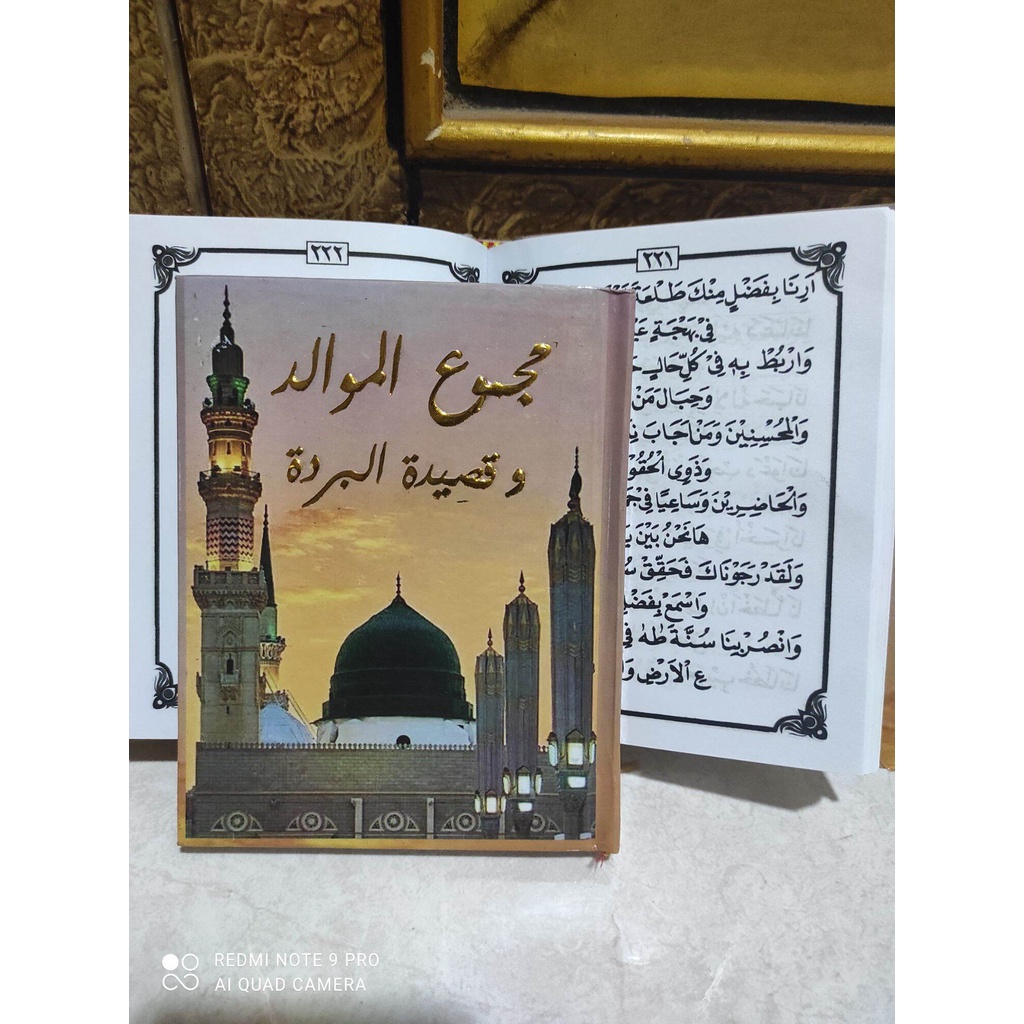 مجموع الموالد
و قصيدة البردة
٢٢١
اَرِنَا بِفَضْلٍ مِنْكَ طَلْعَةَ
فِيْ بَهْجَةِ
وَارْبُطْ بِهِ فِيْ كُلِّ حَالٍ
وَحِبَالَ مَنْ
وَالْمُحْسِنِيْنَ وَمَنْ اَجَابَ
وَذَوِى الْحُقُوْ
وَالْحَاضِرِيْنَ وَسَاعِيًا فِيْ
هَانَحْنُ بَيْنَ
وَلَقَدْ رَجَوْنَاكَ فَحَقِّقْ
وَاسْمَعْ بِفَضْلِ
وَانْصُرْبِنَا سُنَّةَ طٰهٰ فِيْ
عِ الْاَرْضِ
٢٢٢
REDMI NOTE 9 PRO
AI QUAD CAMERA